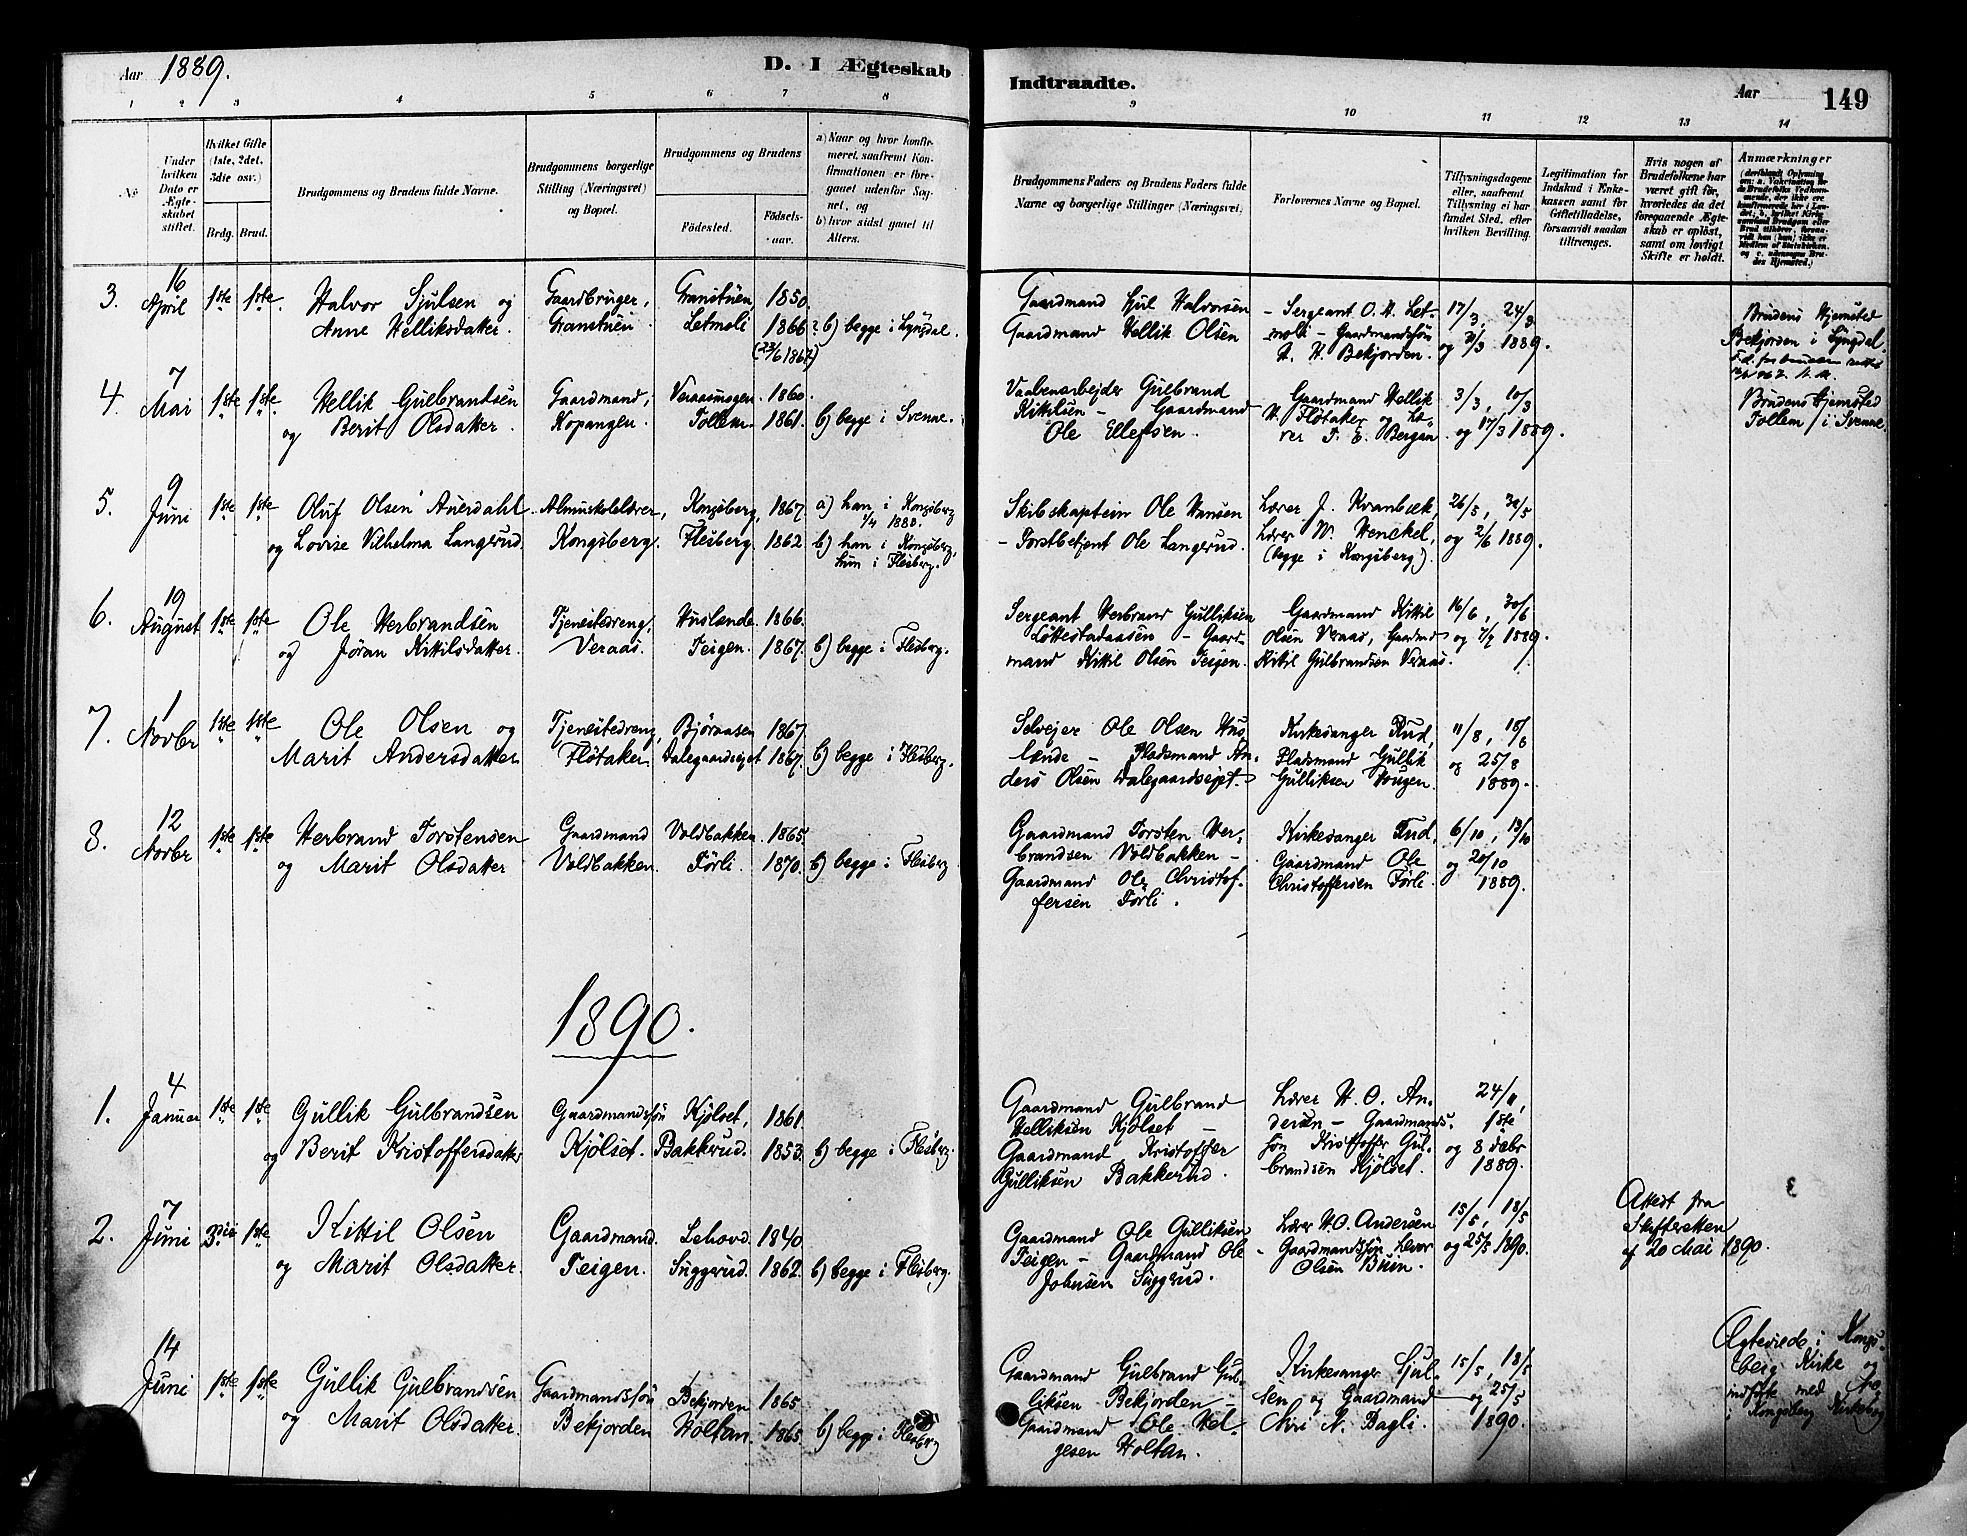 Aar 1889.
D. I Ægteskab
Indtraadte.
Aar 149
1 2 3 4 5 6 7 8
9 10 11 12 13 14
No
Under hvilken Dato er Ægteskabet stiftet.
Hvilket Gifte (1ste, 2det, 3die osv.)
Brdg. Brud.
Brudgommens og Brudens fulde Navne.
Brudgommens borgerlige Stilling (Næringsvei) og Bopæl.
Brudgommens og Brudens
Födested. Födselsaar.
a) Naar og hvor konfirmeret, saafremt Konfirmationen er foregaaet udenfor Sognet, og
b) hvor sidst gaaet til Alters.
Brudgommens Faders og Brudens Faders fulde Navne og borgerlige Stillinger (Næringsvei)
Forlovernes Navne og Bopæl.
Tillysningsdagene eller, saafremt Tillysning ei har fundet Sted, efter hvilken Bevilling.
Legitimation for Indskud i Enkekassen samt for Giftetilladelse, forsaavidt saadan tiltrænges.
Hvis nogen af Brudefolkene har været gift för, hvorledes da det foregaaende Ægteskab er oplöst, samt om lovligt Skifte er holdt.
Anmærkninger
3. 16 April 1ste 1ste Halvor Sjulsen og Gaardbruger, Granstuen 1850.
Anne Helliksdatter. Granstuen. Letmoli 1866? b) begge i Lyngdal.
(23/6 1867)
Gaardmand Sjul Halvorsen - Sergeant O. H. Let- 17/3, 24/3
Gaardmand Hellik Olsen moli - Gaardmandssøn og 31/3 1889.
H. H. Bekjorden.
Brudens Hjemsted
Bekjorden i Lyngdal.
4. 7 Mai 1ste 1ste Hellik Gulbrandsen Gaardmand, Veraasmogen 1860.
og Berit Olsdatter. Kopangen. Tollem. 1861. b) begge i Svenne.
Vaabenarbejder Gulbrand Gaardmand Hellik 3/3, 10/3
Kittilsen - Gaardmand H. Fløtaker og Læ- og 17/3 1889.
Ole Ellefsen. rer T. E. Bergan.
Brudens Hjemsted
Tollem i Svenne.
5. 9 Juni 1ste 1ste Oluf Olsen Auerdahl Almuskolelærer, Kongsberg, 1867. a) han i Kongsberg 1/4 1883.
og Lovise Vilhelma Langerud. Kongsberg. Flesberg. 1862 b) han i Kongsberg, hun i Flesberg.
Skibskaptein Ole Hansen Lærer J. Kvanbæk, 26/5, 30/5
- Forstbetjent Ole Langerud. Lærer W. Henckel, og 2/6 1889.
(begge i Kongsberg).
6. 19 August 1ste 1ste Ole Herbrandsen Tjenestedreng, Huslænde. 1866.
og Jøran Kittilsdatter. Veraas. Teigen. 1867. b) begge i Flesberg.
Sergeant Herbrand Gulliksen Gaardmand Kittil 16/6, 30/6
Løttestadaasen - Gaard- Olsen Veraas, Gaardmd og 7/7 1889.
mand Kittil Olsen Teigen. Kittil Gulbrandsen Veraas.
7. 1 Novbr 1ste 1ste Ole Olsen og Tjenestedreng, Bjøraasen 1867.
Marit Andersdatter Fløtaker. Dalegaardsejet 1867. b) begge i Flesberg.
Selvejer Ole Olsen Hus- Kirkesanger Ruud, 11/8, 18/8
lænde - Pladsmand An- Pladsmand Gullik og 25/8
ders Olsen Dalegaardsejet. Gulliksen Haugen. 1889.
8. 12 Novbr 1ste 1ste Herbrand Torstensen Gaardmand Voldbakken. 1865.
og Marit Olsdatter Voldbakken. Førli. 1870. b) begge i Flesberg.
Gaardmand Torsten Her- Kirkesanger Ruud, 6/10, 13/10
brandsen Voldbakken - Gaardmand Ole og 20/10
Gaardmand Ole Christof- Christoffersen Førli. 1889.
fersen Førli.
1890.
1. 4 Januar 1ste 1ste Gullik Gulbrandsen Gaardmandssøn Kjølset, 1861.
og Berit Kristoffersdatter Kjølset. Bakkerud. 1853. b) begge i Flesberg.
Gaardmand Gulbrand Lærer H. O. An- 24/11,
Helliksen Kjølset - dersen - Gaardmands- 1ste
Gaardmand Kristoffer søn Kristoffer Gul- og 8 Debr
Gulliksen Bakkerud. brandsen Kjølset. 1889.
2. 7 Juni 3die 1ste Kittil Olsen Gaardmand. Lehovd. 1840
og Marit Olsdatter. Teigen. Suggerud. 1862. b) begge i Flesberg.
Gaardmand Ole Gulliksen Lærer H. O. Andersen 15/5, 18/5
Teigen - Gaardmand Ole - Gaardmandssøn Levor og 25/5 1890.
Johnsen Suggrud. Olsen Buin.
Attest fra
Skifteretten
af 20 Mai 1890.
14 Juni 1ste 1ste Gullik Gulbrandsen Gaardmandssøn Bekjorden 1865
og Marit Olsdatter. Bekjorden Holtan. 1865 b) begge i Flesberg
Gaardmand Gulbrand Gul- Kirkesanger Sjul- 15/5, 18/5
liksen Bekjorden - sen og Gaardmand og 25/5
Gaardmand Ole Hel- N. Bagli. 1890.
gesen Holtan.
Ægteviede i Kongs-
berg Kirke og
indført med
i Kongsberg Kirkebog